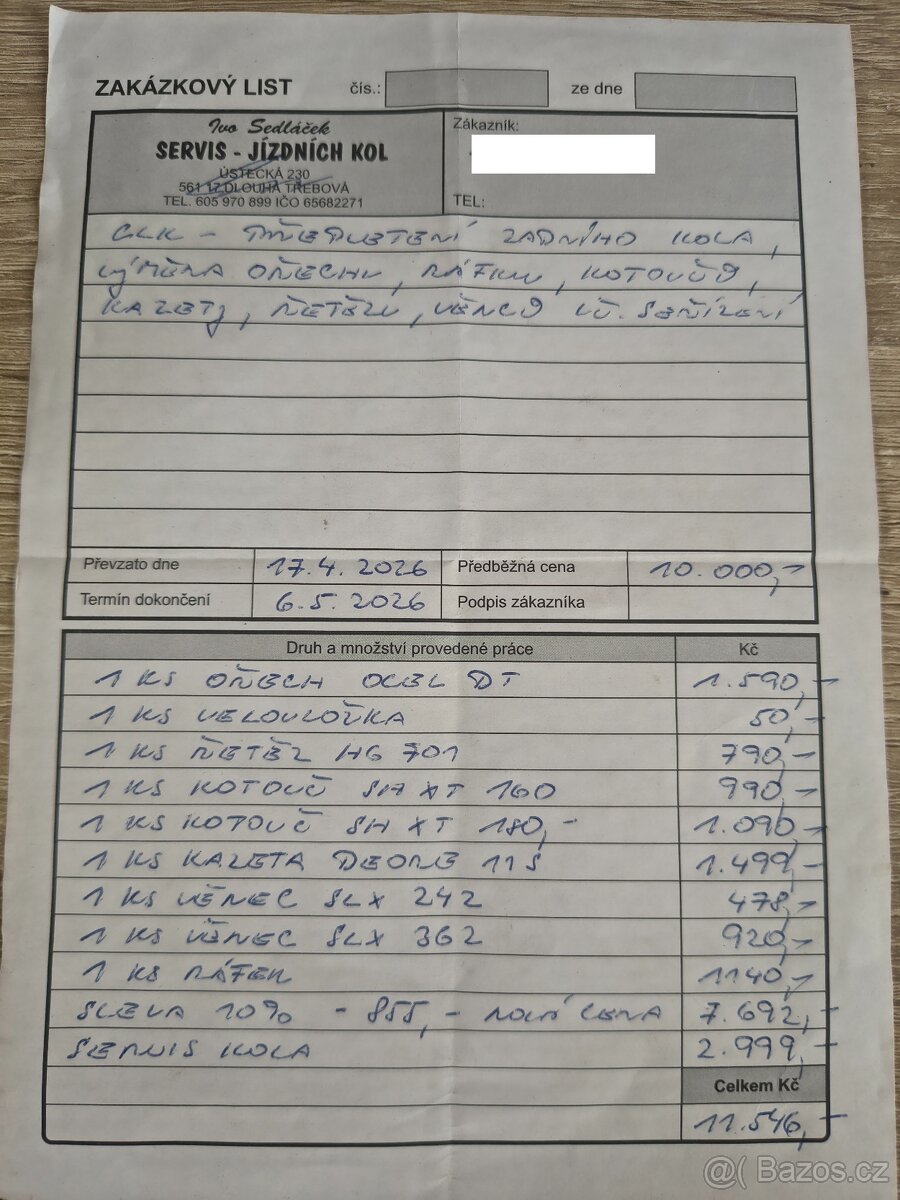 ZAKÁZKOVÝ LIST čís.: ze dne
Ivo Sedláček
SERVIS - JÍZDNÍCH KOL
ÚSTECKÁ 230
561 17 DLOUHÁ TŘEBOVÁ
TEL. 605 970 899 IČO 65682271
Zákazník:
TEL:
CLK - PŘEPLETENÍ ZADNÍHO KOLA,
VÝMĚNA OŘECHU, RÁFKU, KOTOUČŮ,
KAZETY, ŘETĚZU, VĚNCŮ VČ. SEŘÍZENÍ
Převzato dne 17.4.2026 Předběžná cena 10.000,-
Termín dokončení 6.5.2026 Podpis zákazníka
Druh a množství provedené práce Kč
1 KS OŘECH OCEL DT 1.590,-
1 KS VELOVLOŽKA 50,-
1 KS ŘETĚZ HG 701 790,-
1 KS KOTOUČ SH XT 160 990,-
1 KS KOTOUČ SH XT 180,- 1.090,-
1 KS KAZETA DEORE 11S 1.499,-
1 KS VĚNEC SLX 242 478,-
1 KS VĚNEC SLX 362 920,-
1 KS RÁFEK 1140,-
SLEVA 10% - 855,- NOVÁ CENA 7.692,-
SERVIS KOLA 2.999,-
Celkem Kč
11.546,-
@( Bazos.cz